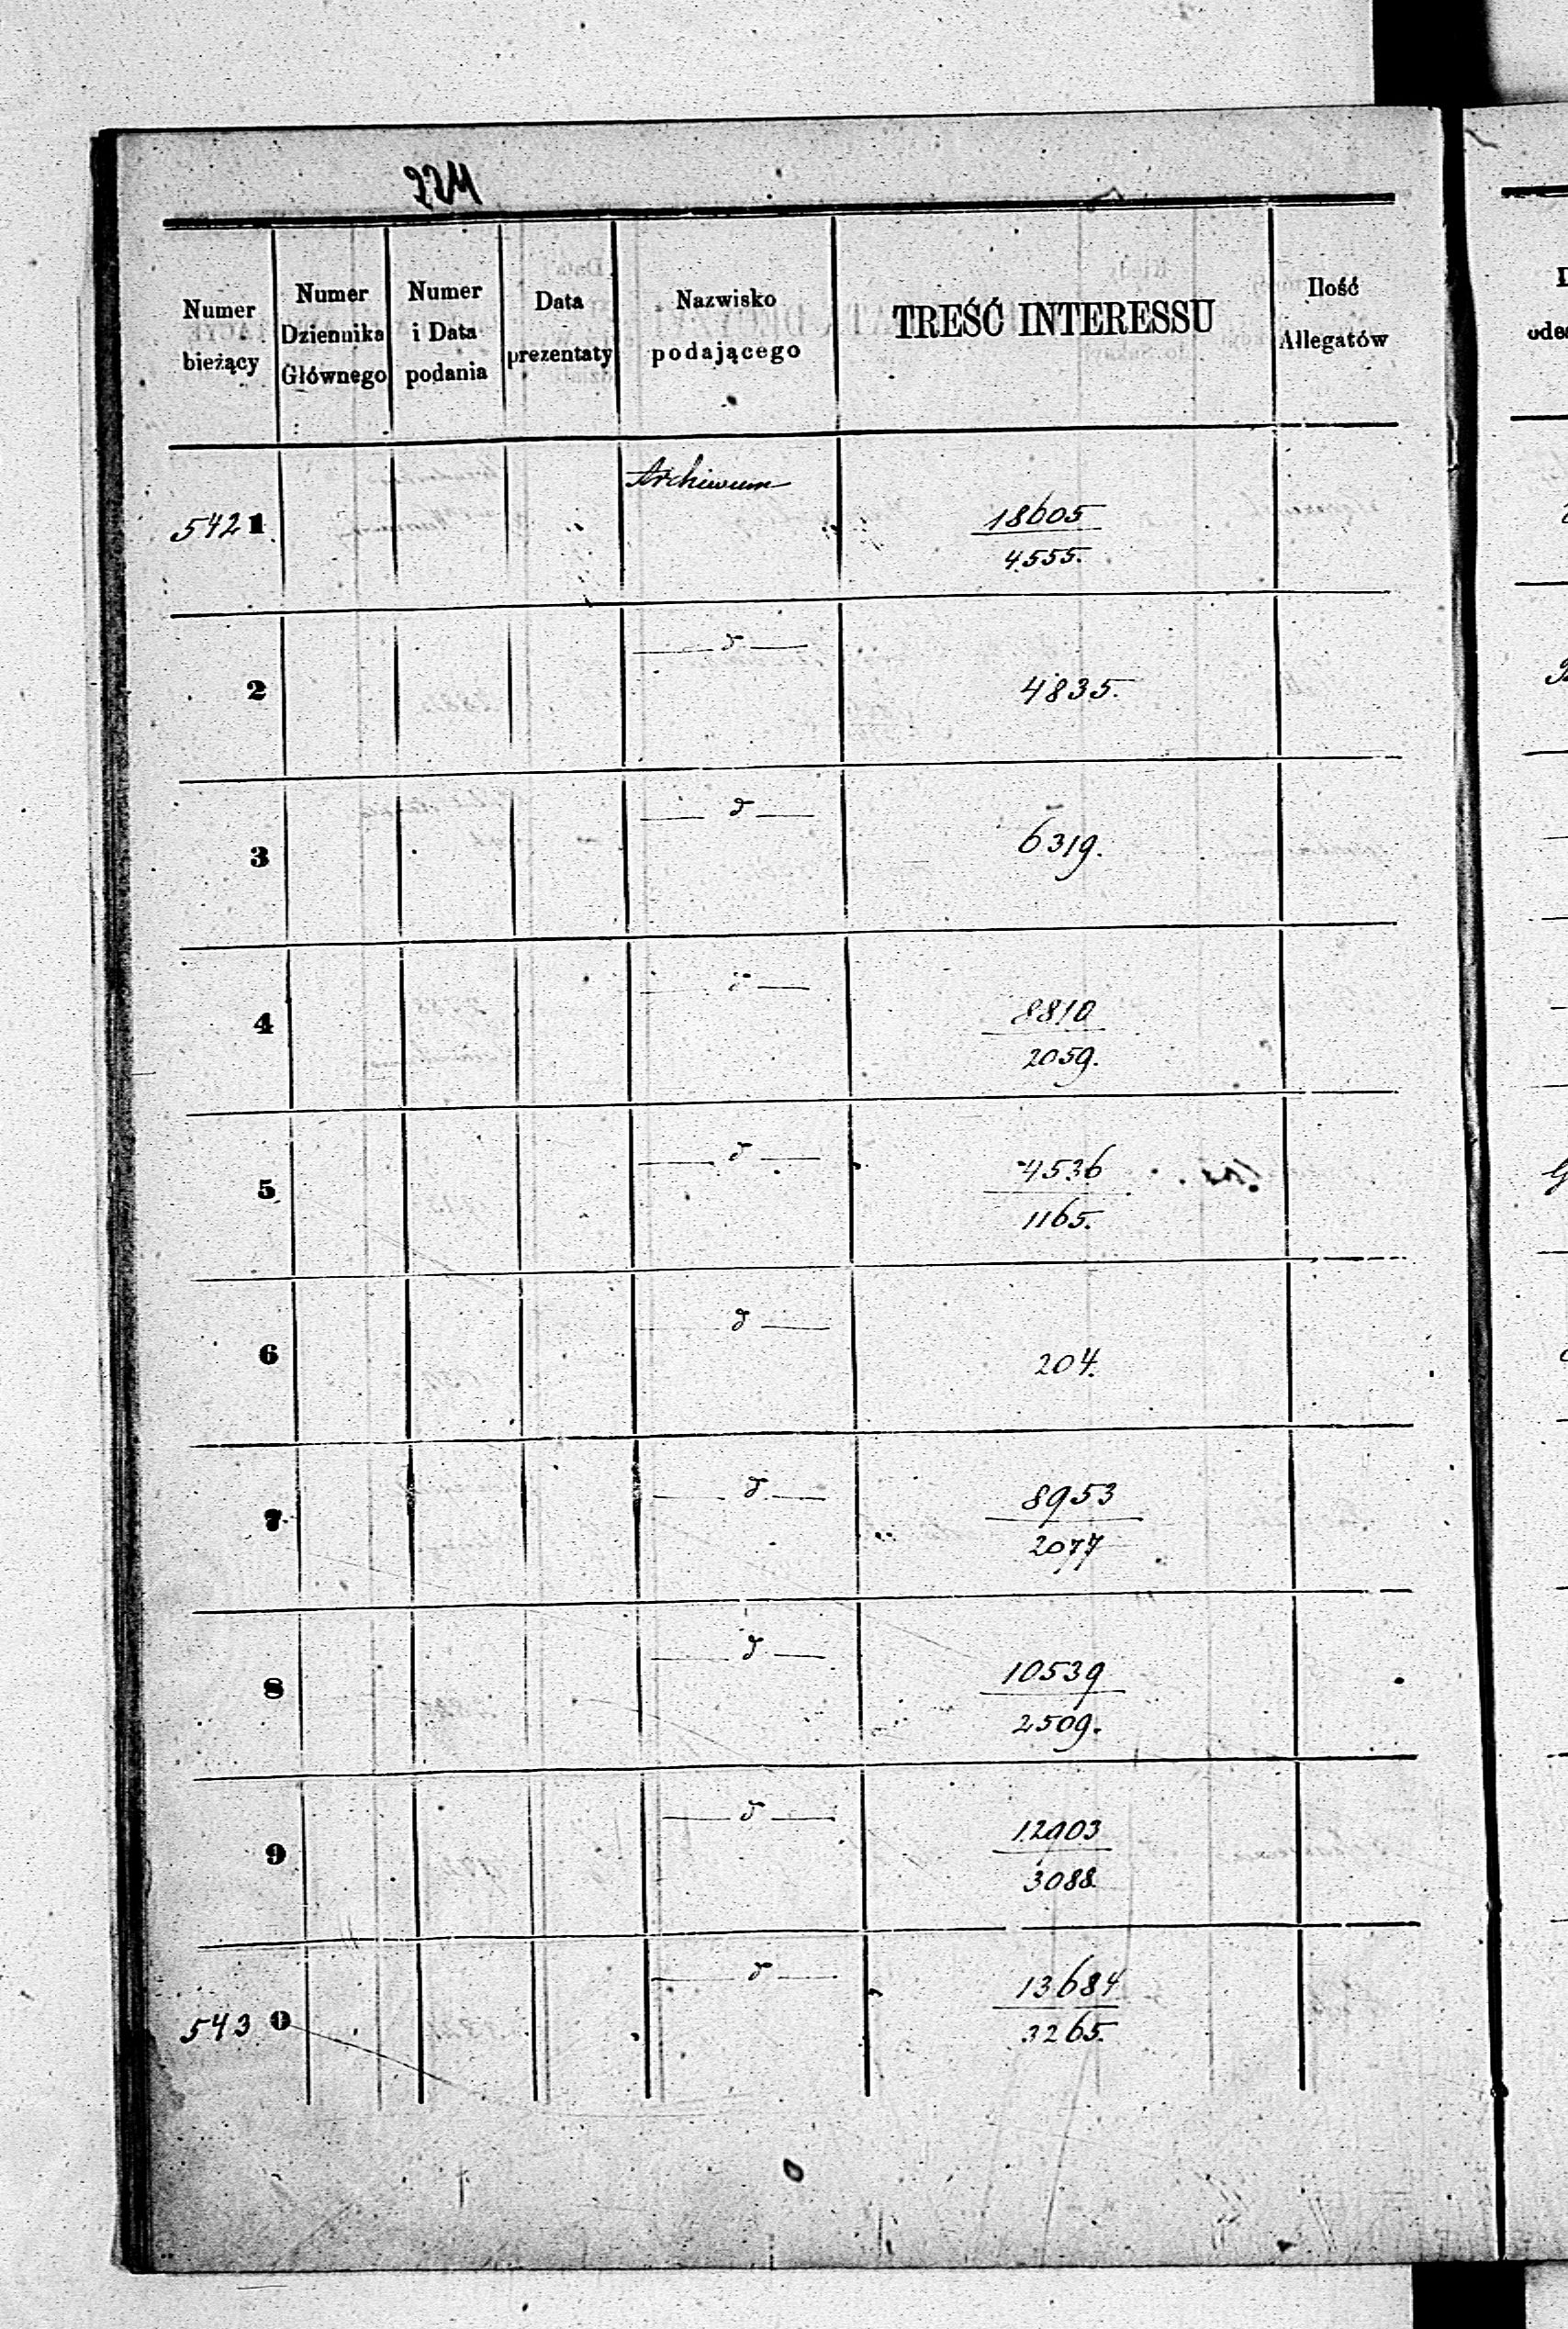 224
Numer bieżący
Numer Dziennika Głównego
Numer i Data podania
Data prezentaty
Nazwisko podającego
TREŚĆ INTERESSU
Ilość Allegatów
Archiwum
5421 18605
4555.
2 — d — 4835.
3 — d — 6319.
4 — d — 8810
2059.
5 — d — 4536
1165.
6 — d — 204.
7 — d — 8953
2077
8 — d — 10539
2509.
9 — d — 12903
3088
5430 — d — 13684
3265.